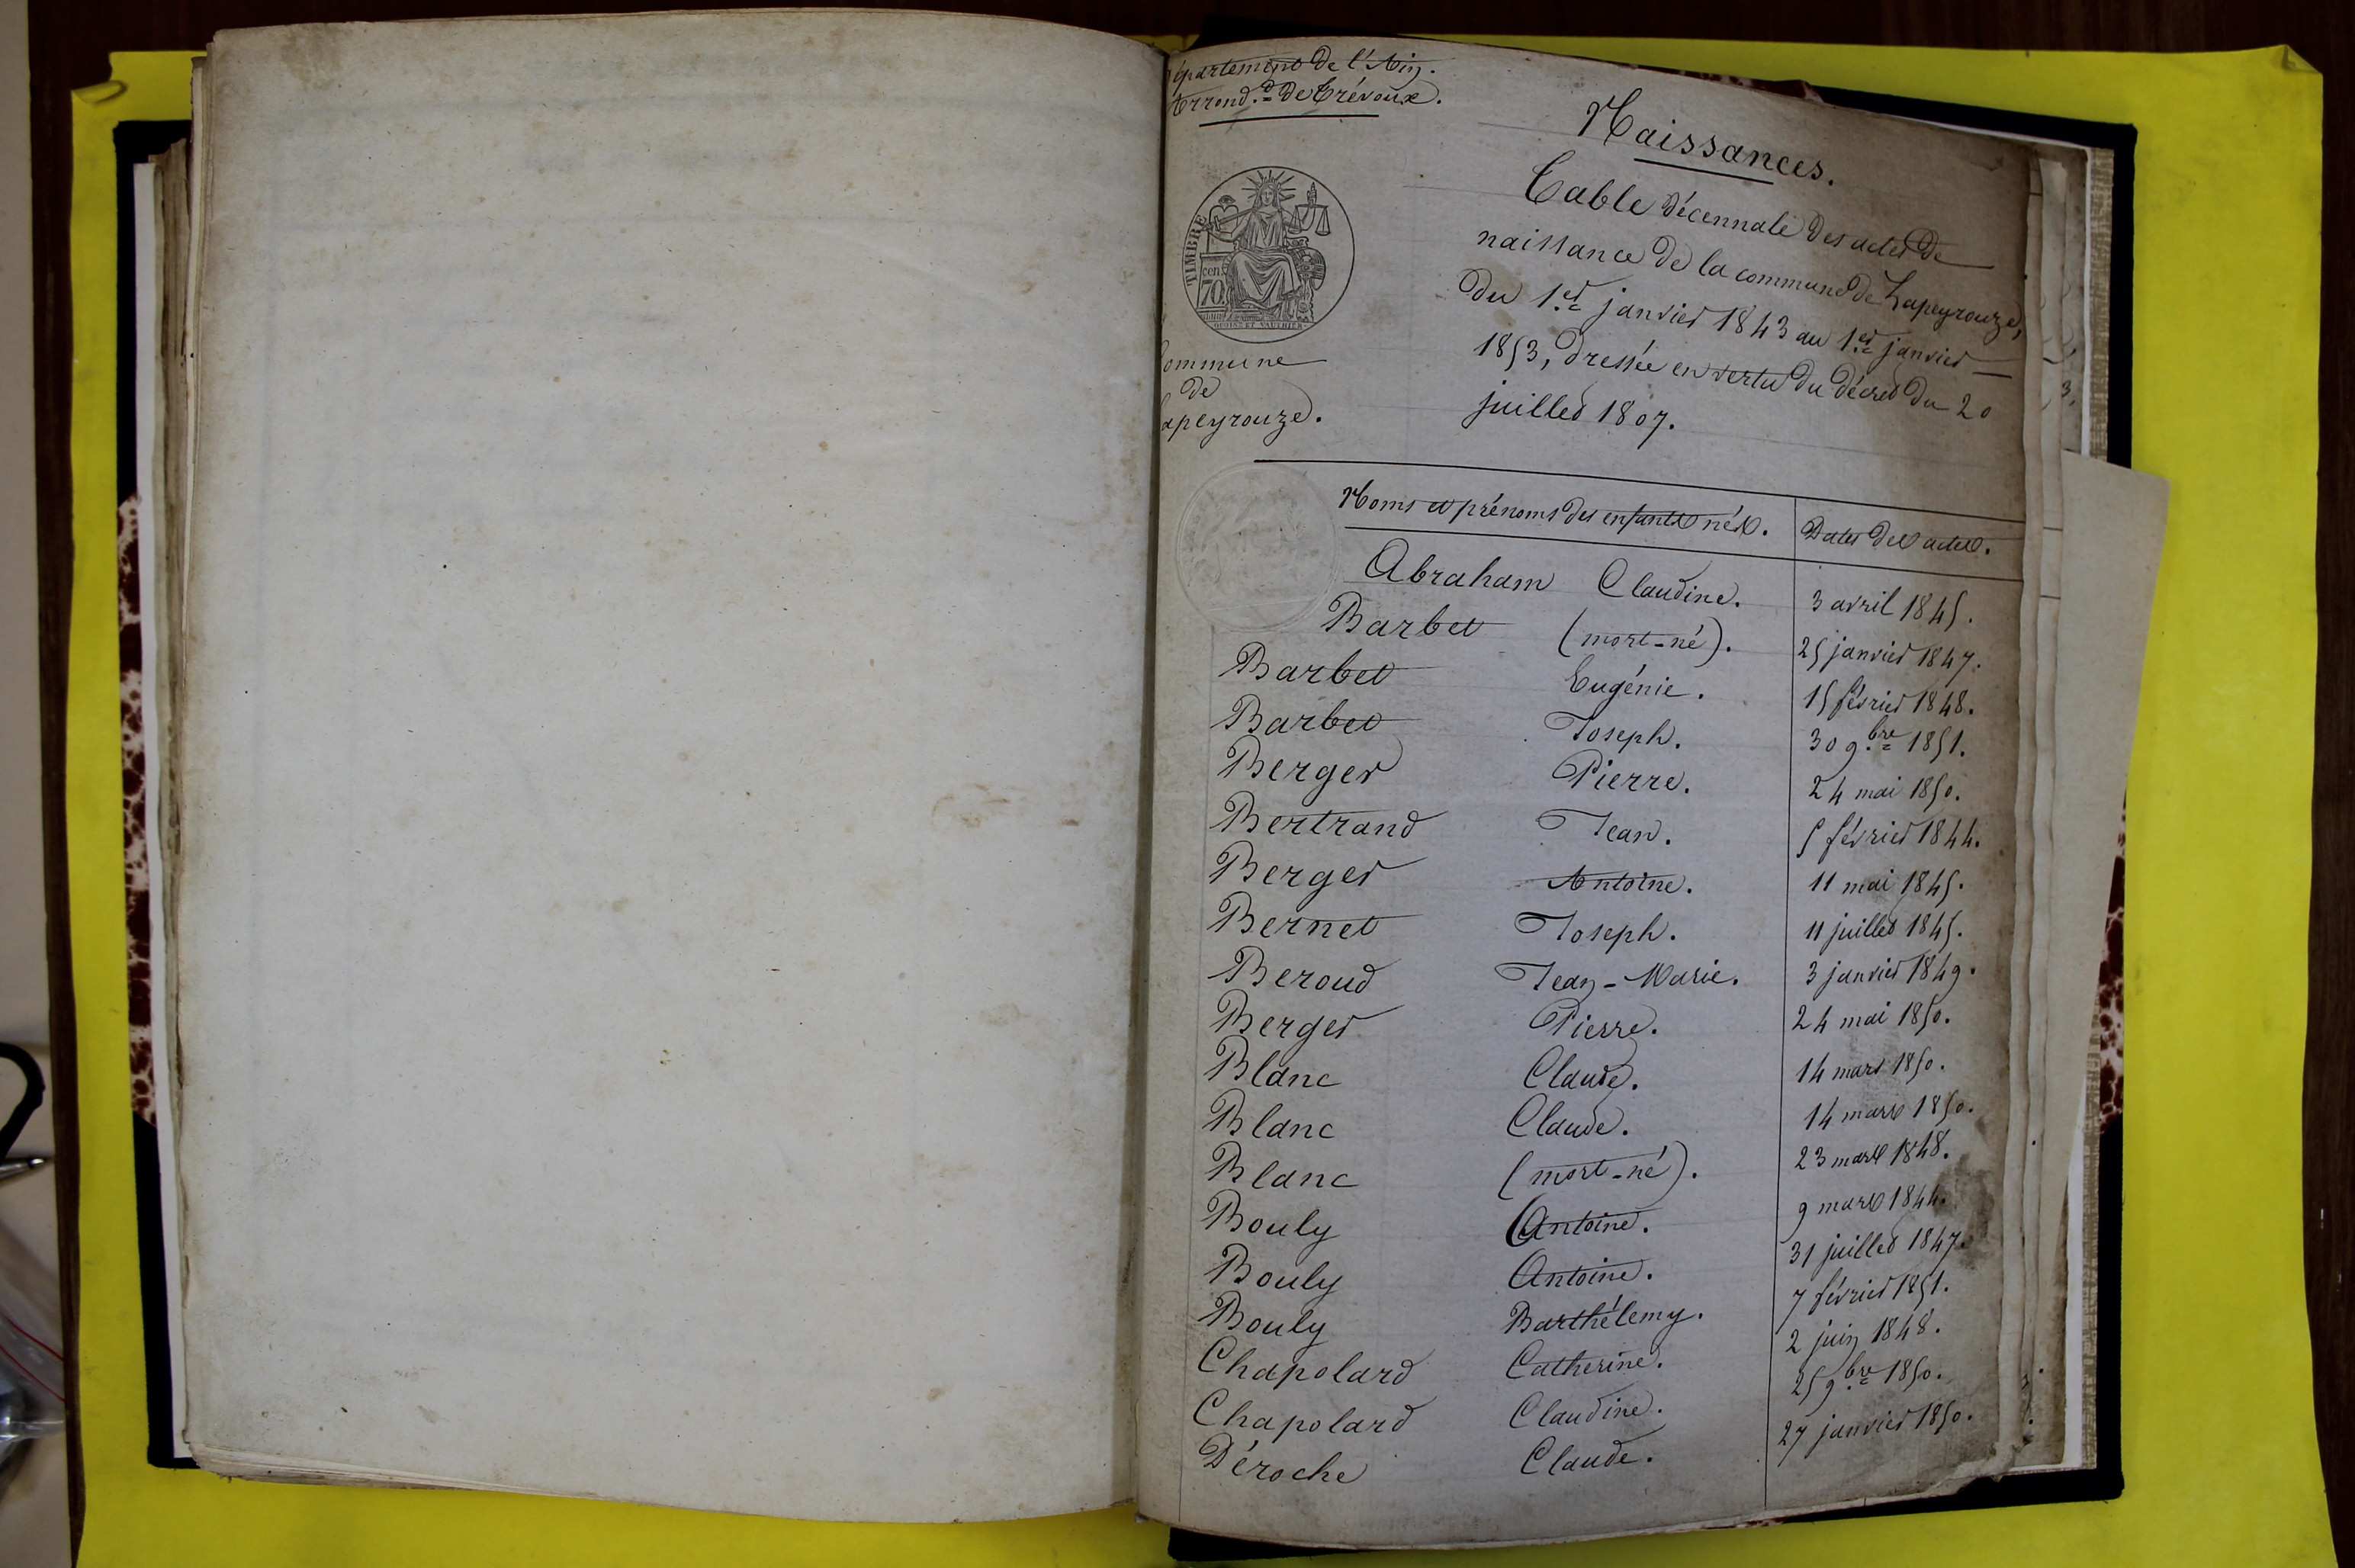 épartement de l'Ain.
Arrond.t de Trévoux.
Naissances.
TIMBRE
cen.
70
Table décennale des actes de
naissance de la commune de Lapeyrouze,
du 1.er janvier 1843 au 1.er janvier
1853, dressée en vertu du décret du 20
juillet 1807.
ommune
de
apeyrouze.
Noms et prénoms des enfants nés. Dates des actes.
Abraham Claudine. 3 avril 1845.
Barbet (mort-né). 25 janvier 1847.
Barbet Eugénie. 15 février 1848.
Barbet Joseph. 30 9.bre 1851.
Berger Pierre. 24 mai 1850.
Bertrand Jean. 5 février 1844.
Berger Antoine. 11 mai 1845.
Bernet Joseph. 11 juillet 1845.
Beroud Jean-Marie. 3 janvier 1849.
Berger Pierre. 24 mai 1850.
Blanc Claude. 14 mars 1850.
Blanc Claude. 14 mars 1850.
Blanc (mort-né). 23 mars 1848.
Bouly Antoine. 9 mars 1844.
Bouly Antoine. 31 juillet 1847.
Bouly Barthélemy. 7 février 1851.
Chapolard Catherine. 2 juin 1848.
Chapolard Claudine. 25 9.bre 1850.
Déroche Claude. 27 janvier 1850.